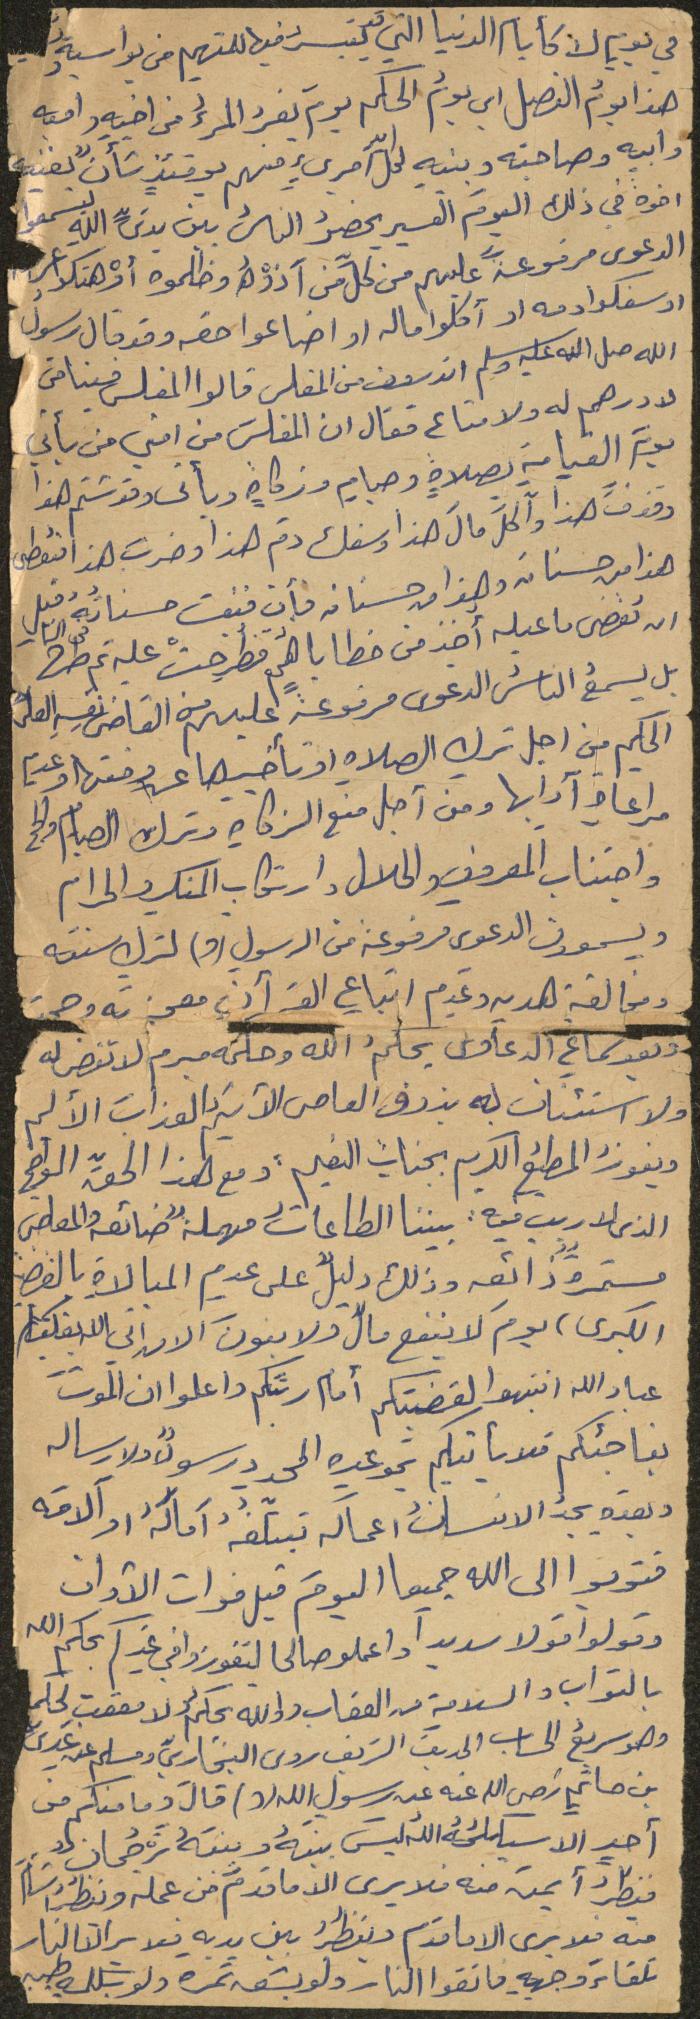 في يوم لا كأيام الدنيا التي قد يتيسر فيها للمتهم من يواسيه
هذا يوم الفصل اي يوم الحكم يوم يفر المرء من اخيه وامه
وابيه وصاحبته وبنيه لكل امرئ منهم يومئذ شأن يغنيه
اخوة في ذلك اليوم العسير يحضر الناس بين يدي الله ليسمعوا
الدعوى مرفوعة عليهم من كل من آذوه وظلموه أو هتكوا عر
او سفكوا دمه او أكلوا ماله او اضاعوا حقه وقد قال رسول
الله صلى الله عليه وسلم اتدرون من المفلس قالوا المفلس فينا من
لا درهم له ولا متاع فقال ان المفلس من امتي من يأتي
يوم القيامة بصلاة وصيام وزكاة ويأتي وقد شتم هذا
وقذف هذا وأكل مال هذا وسفك دم هذا وضرب هذا فيعطى
هذا من حسناته وهذا من حسناته فإن فنيت حسناته قبل
ان يقضى ما عليه أخذ من خطاياهم فطرحت عليه ثم طرح في النار
بل يسمع الناس الدعوى مرفوعة عليهم من القاضي نفسه العلي
الحكيم من اجل ترك الصلاة او تأخيرها عن وقتها وعدم
مراعاة آدابها ومن أجل منع الزكاة وترك الصيام والحج
واجتناب المعروف والحلال وارتكاب المنكر والحرام
ويسمعون الدعوى مرفوعة من الرسول (ص) لترك سنته
ومخالفة هديه وعدم اتباع القرآن معجزته
وبعد سماع الدعاوى يحكم الله وحكمه مبرم لا نقض له
ولا استئناف له يذوق العاصي الأثيم العذاب الأليم
ويفوز المطيع الكريم بجنات النعيم ومع هذا الحق الواضح
الذي لا ريب فيه : بيننا الطاعات مهملة ضائعة والمعاصي
مستمرة ذائعة وذلك دليل على عدم المبالاة بالقضية
الكبرى، يوم لا ينفع مال ولا بنون الا من اتى الله بقلب
عباد الله انتبهوا لقضيتكم أمام ربكم واعلموا ان الموت
يفاجئكم فلا يأتيكم بموعده المحدد رسول ولا رساله
وبعده يجد الانسان اعماله آماله او آلامه
فتوبوا الى الله جميعا اليوم قبل فوات الأوان
وقولوا قولا سديداً واعملوا صالحا لتفوزوا في غدكم بحكم الله
بالثواب والسلامة من العقاب والله يحكم لا معقب لحكمه
وهو سريع الحساب الحديث الشريف روى البخاري ومسلم عن عدي
بن حاتم رضي الله عنه عن رسول الله (ص) قال وما منكم من
أحد الا سيكلمه الله ليس بينه وبينه ترجمان
فينظر أيمن منه فلا يرى الا ما قدم من عمله وينظر اشأم
منه فلا يرى الا ما قدم وينظر بين يديه فلا يرى الا النار
تلقاء وجهه فاتقوا النار ولو بشق تمرة ولو بكلمة طيبه